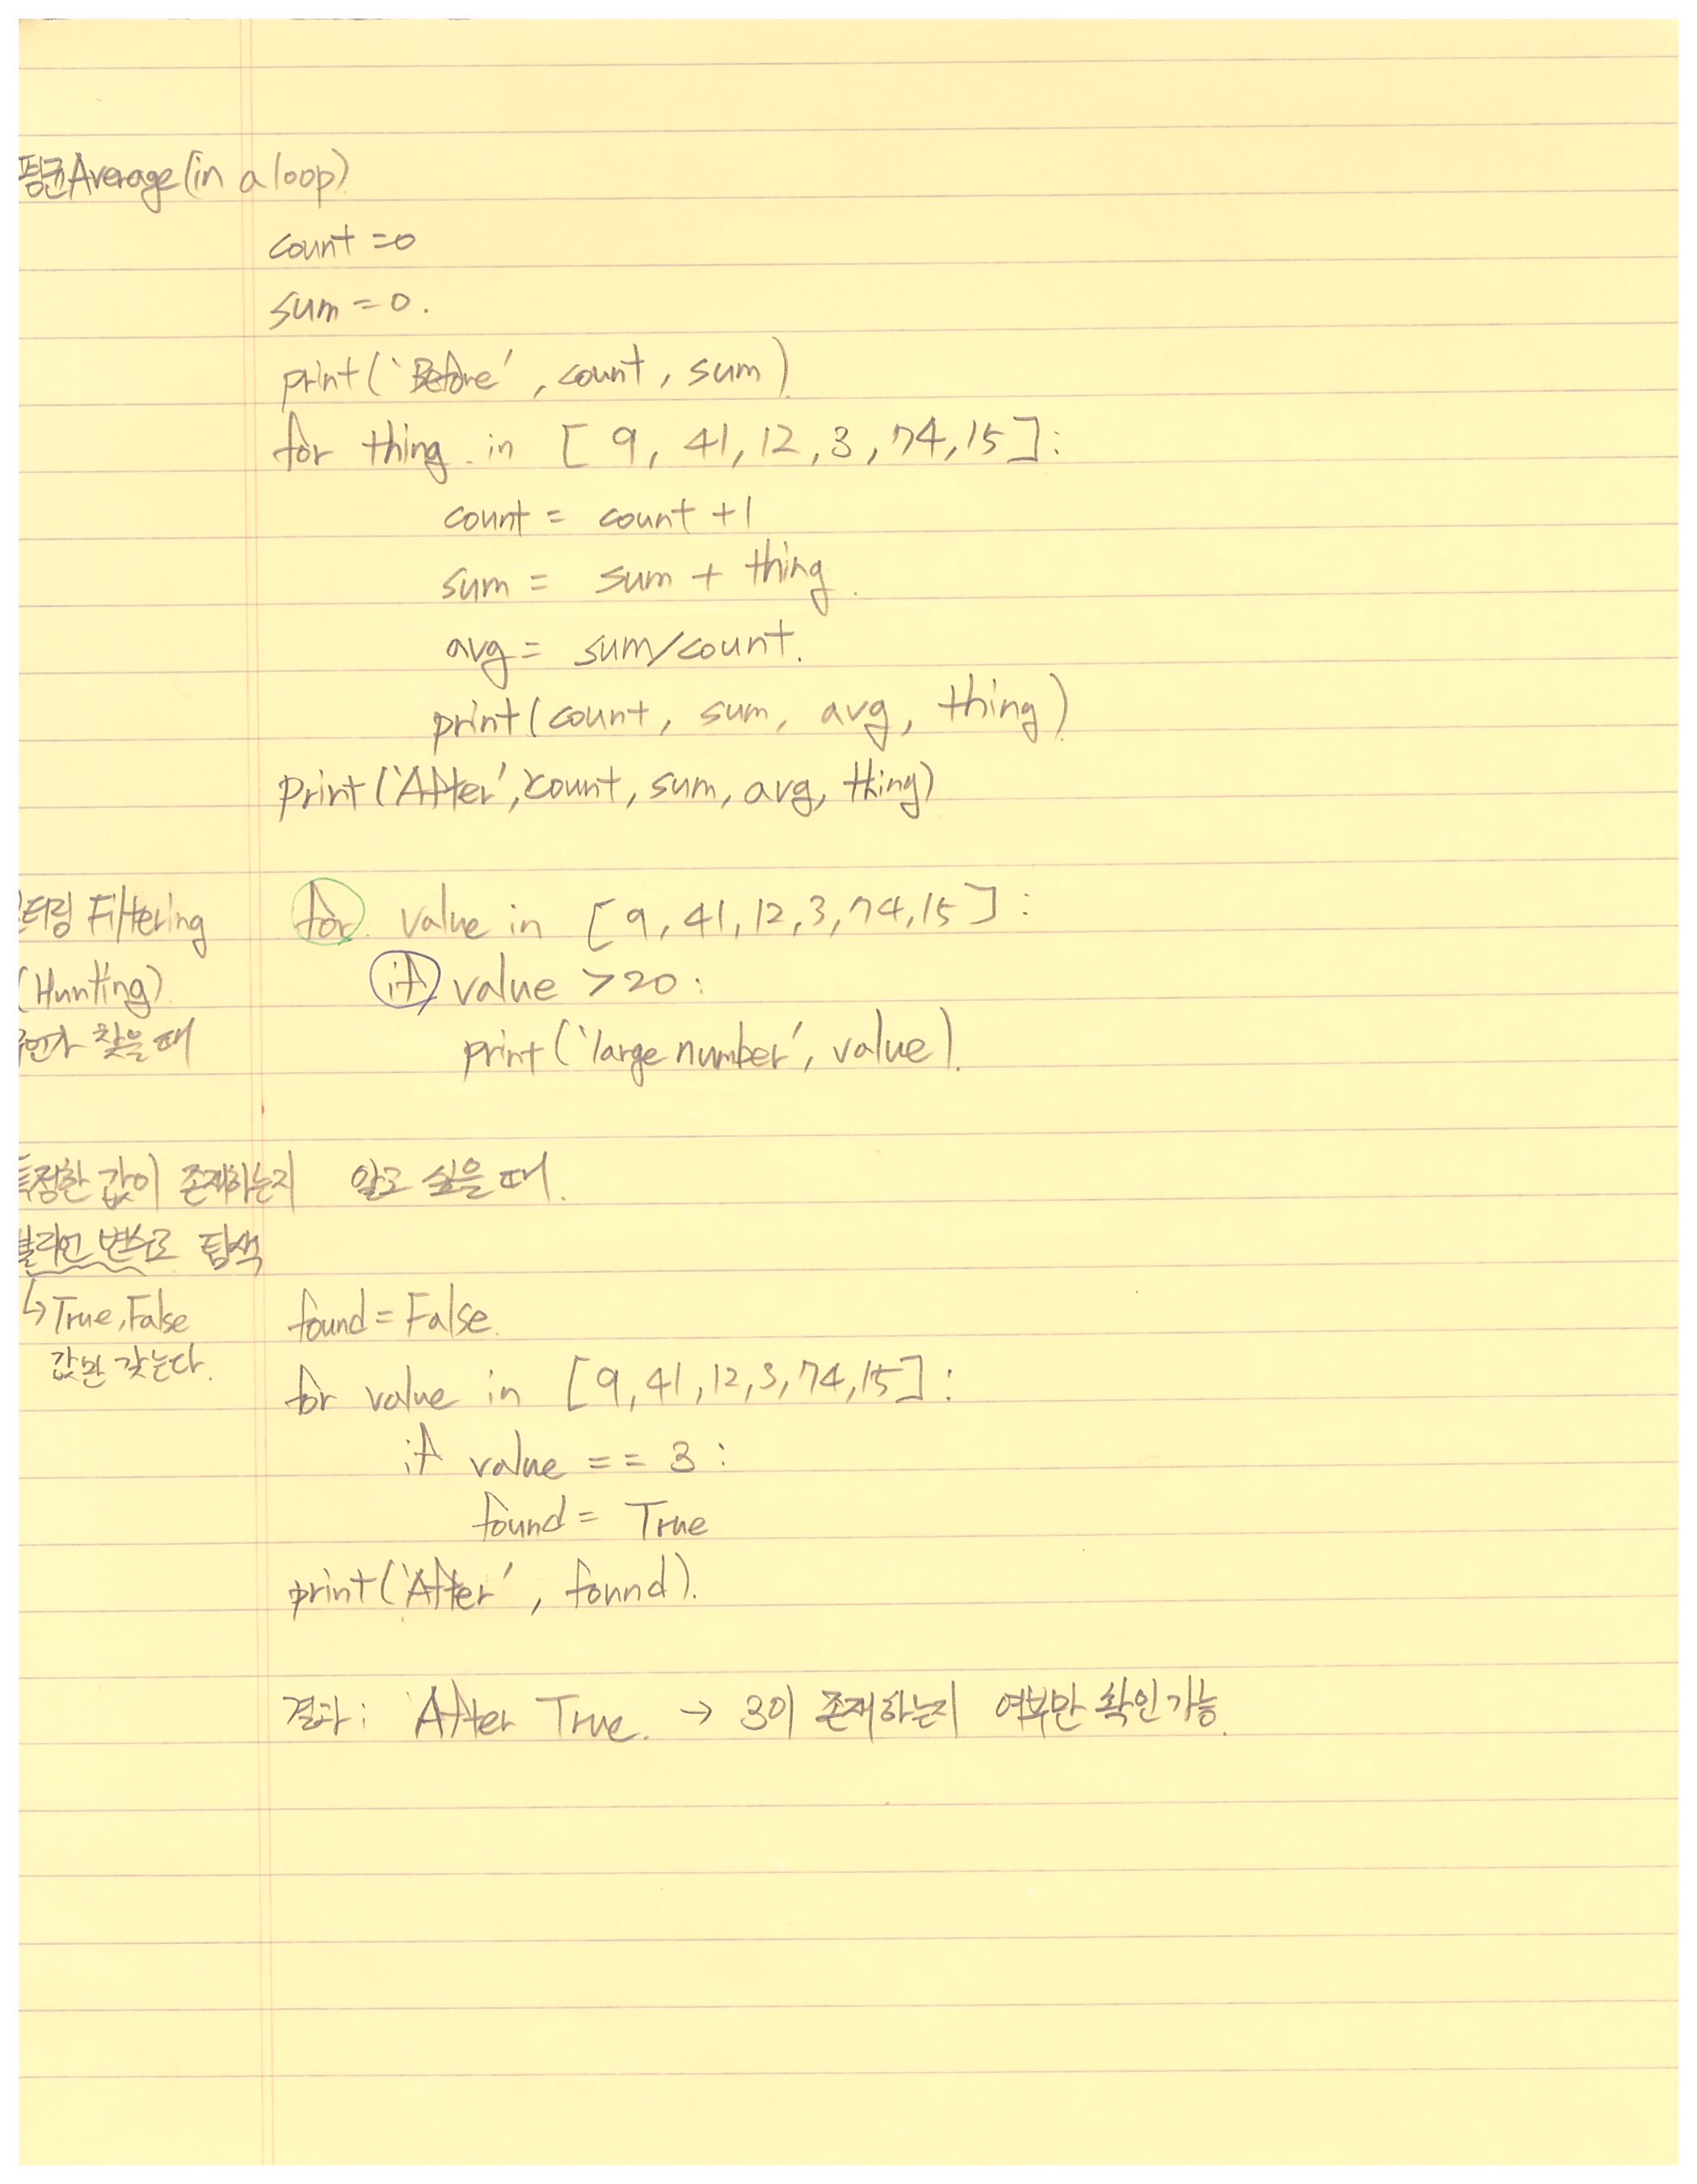 평균 Average (in a loop)
count = 0
sum = 0.
print('Before', count, sum)
for thing in [9, 41, 12, 3, 74, 15]:
count = count + 1
sum = sum + thing.
avg = sum/count.
print(count, sum, avg, thing)
print('After', count, sum, avg, thing)
터링 Filtering for value in [9, 41, 12, 3, 74, 15]:
(Hunting) if value > 20:
찾을 때 print('large number', value).
특정한 값이 존재하는지 알고 싶을 때.
불리언 변수로 탐색
↳ True, False found = False.
값만 갖는다. for value in [9, 41, 12, 3, 74, 15]:
if value == 3:
found = True
print('After', found).
결과: After True. → 3이 존재하는지 여부만 확인 가능.